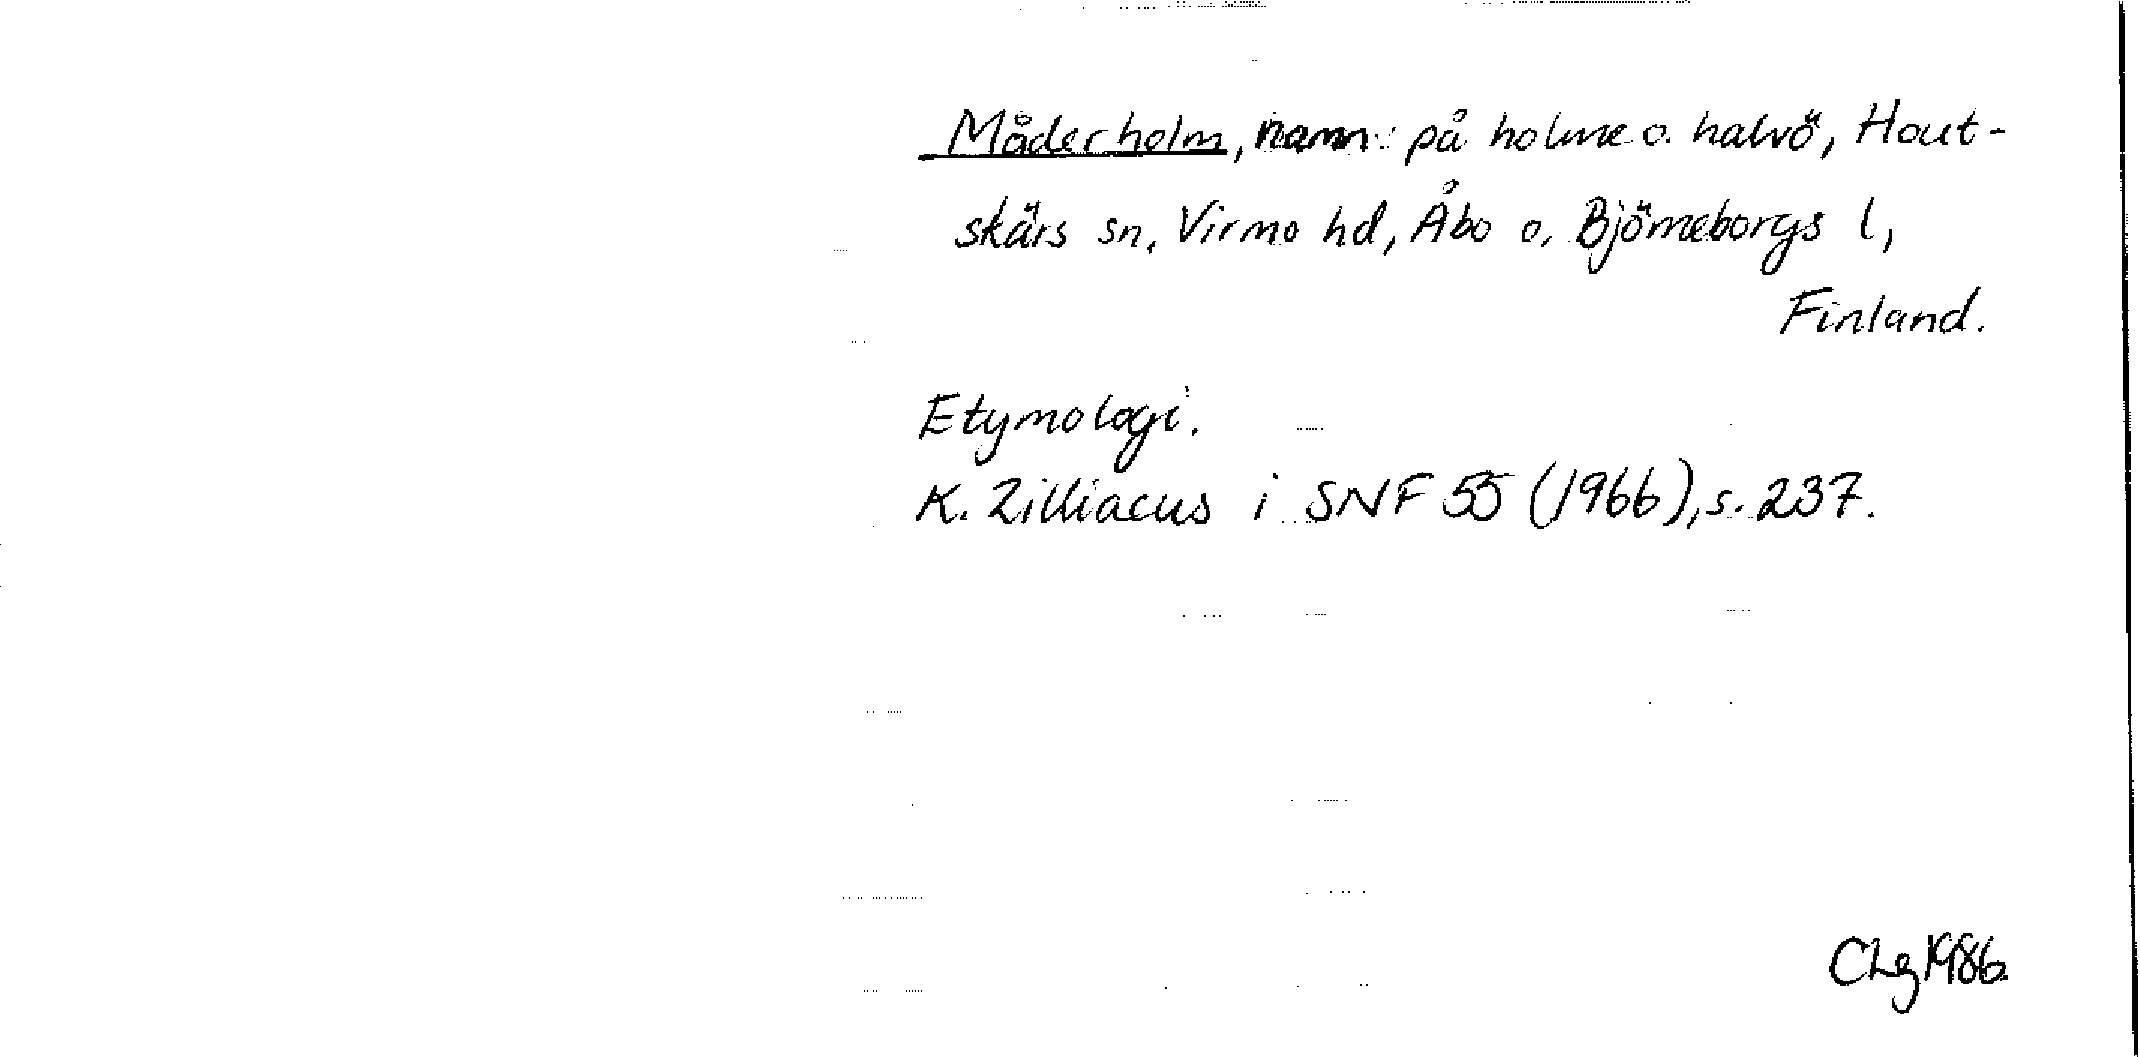 Måderholm, namn på holme o. halvö, Hout-
skärs sn, Virmo hd, Åbo o. Björneborgs l,
Finland.
Etymologi.
K. Zilliacus i SNF 55 (1966), s. 237.
CLg 1986